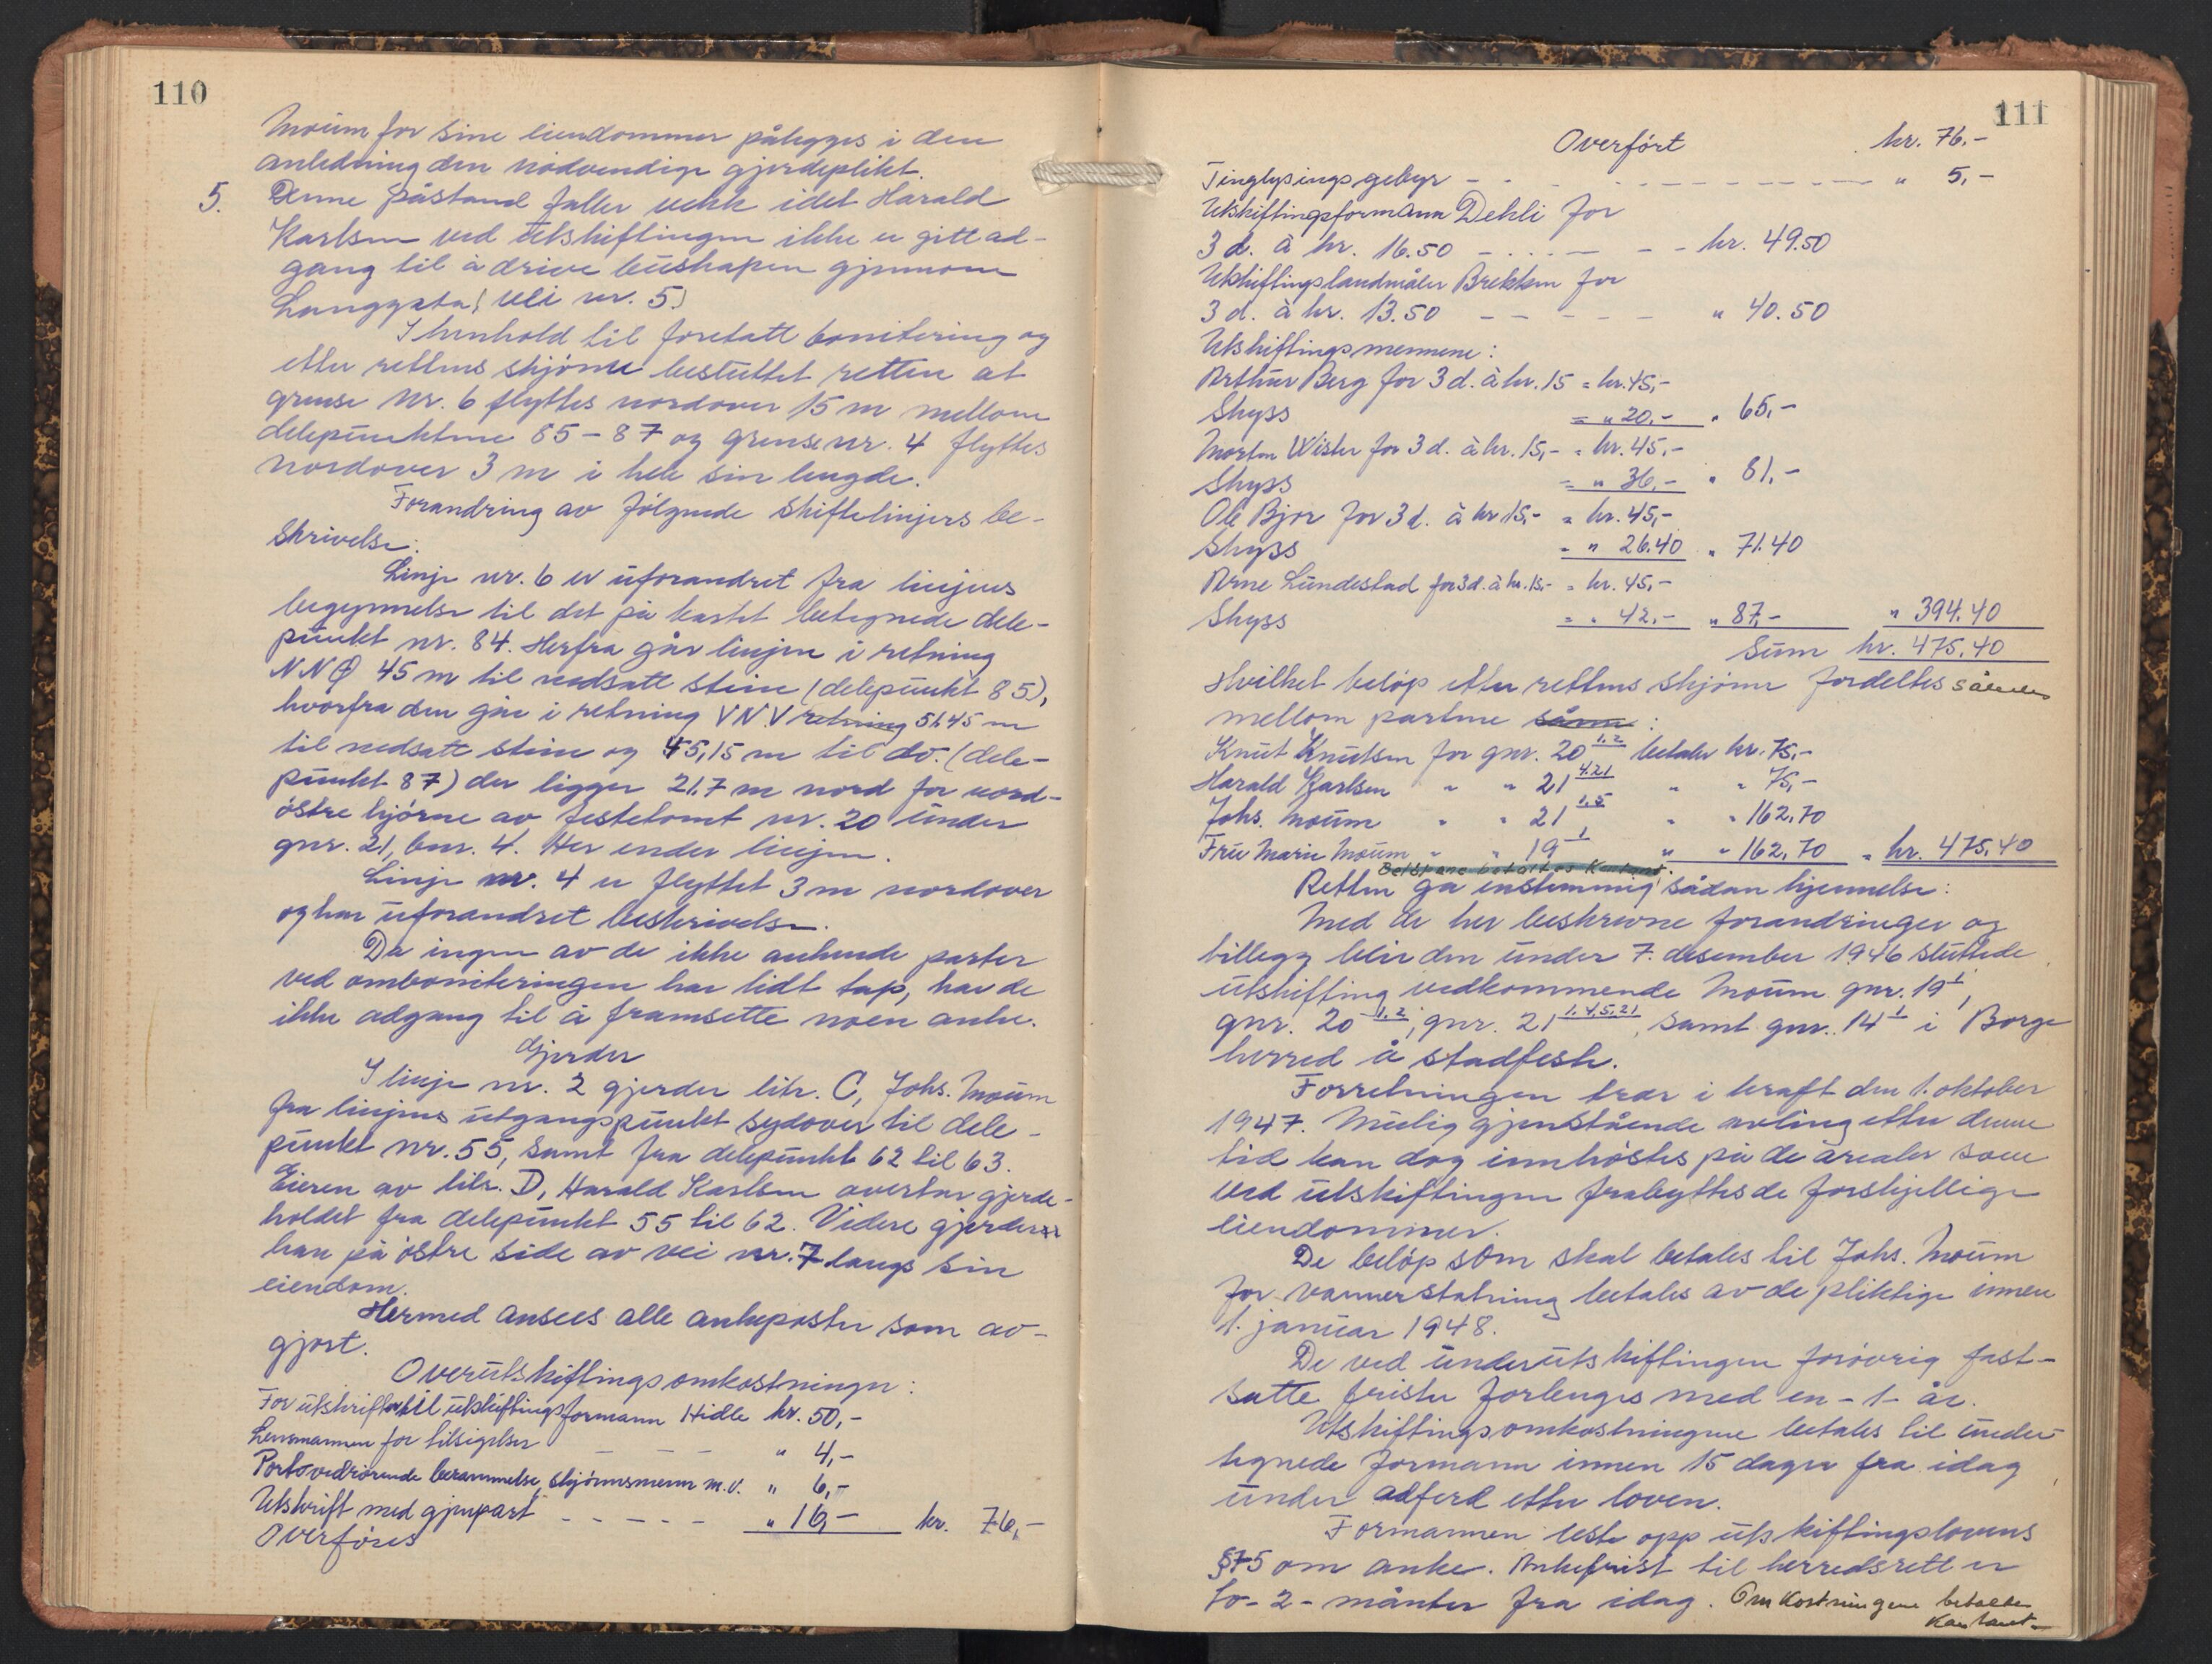 110
Moum for sine eiendommer pålegges i den
anledning den nödvendige gjerdeplikt.
5. Denne påstand faller vekk idet Harald
Karlsen ved utskiftingen ikke er gitt ad-
gang til å drive buskapen gjennom
Langgata, vei nr. 5.
I henhold til foretatt bonitering og
etter rettens skjönn besluttet retten at
grense nr. 6 flyttes nordover 15 m mellom
delepunktene 85-87 og grense nr. 4 flyttes
nordover 3 m i hele sin lengde.
Forandring av fölgende skiftelinjers be-
skrivelse:
Linje nr. 6 er uforandret fra linjens
begynnelse til det på kartet betegnede dele-
punkt nr. 84. Herfra går linjen i retning
NNØ 45 m til nedsatt stein (delepunkt 85),
hvorfra den går i retning VNV retning 51.45 m
til nedsatt stein og 45,15 m til do. (dele-
punkt 87) der ligger 21.7 m nord for nord-
östre hjörne av festetomt nr. 20 under
gnr. 21, bnr. 4. Her ender linjen.
Linje nr. 4 er flyttet 3 m nordover
og har uforandret beskrivelse.
Da ingen av de ikke ankende parter
ved omboniteringen har lidt tap, har de
ikke adgang til å framsette noen anke.
Gjerder
I linje nr. 2 gjerder litr. C, Johs. Moum
fra linjens utgangspunkt sydover til dele-
punkt nr. 55, samt fra delepunkt 62 til 63.
Eieren av litr. D, Harald Karlsen overtar gjerde-
holdet fra delepunkt 55 til 62. Videre gjerder
han på östre side av vei nr. 7 langs sin
eiendom.
Hermed ansees alle ankeposter som av-
gjort.
Overutskiftingsomkostninger:
For utskrifter til utskiftingsformann Hidle kr. 50,-
Lensmannen for tilsigelser - - - " 4,-
Porto vedrörende berammelse, skjönnsmenn m.v. " 6,-
Utskrift med gjenpart - - - - - " 16,- kr. 76,-
Overföres
111
Overfört kr. 76,-
Tinglysingsgebyr - - - " 5,-
Utskiftingsformann Dehli for
3 d. à kr. 16.50 - - - kr. 49.50
Utskiftingslandmåler Brekken for
3 d. à kr. 13.50 - - - - - " 40.50
Utskiftingsmennene:
Arthur Berg for 3 d. à kr. 15 = kr. 45,-
Skyss = " 20,- " 65,-
Morten Wister for 3 d. à kr. 15,- = kr. 45,-
Skyss = " 36,- " 81,-
Ole Bjor for 3 d. à kr 15,- = kr. 45,-
Skyss = " 26.40 " 71.40
Arne Lundestad for 3 d. à kr. 15,- = kr. 45,-
Skyss = " 42,- " 87,- " 394.40
Sum kr. 475.40
Hvilket belöp etter rettens skjönn fordeltes således
mellom partene :
Knut Knutsen for gnr. 20 1,2 betaler kr. 75,-
Harald Karlsen " " 21 4.21 " " 75,-
Johs. Moum " " 21 1,5 " " 162,70
Fru Marie Moum " " 19 1 " " 162,70 = kr. 475,40
Belöpene betaltes Kontant.
Retten ga enstemmig sådan kjennelse:
Med de her beskrevne forandringer og
tillegg blir den under 7. desember 1946 sluttede
utskifting vedkommende Moum gnr. 19 1,
gnr. 20 1,2, gnr. 21 1,4,5,21, samt gnr. 14 1 i Borge
herred å stadfeste.
Forretningen trer i kraft den 1. oktober
1947. Mulig gjenstående avling etter denne
tid kan dog innhöstes på de arealer som
ved utskiftingen frabyttes de forskjellige
eiendommer.
De belöp som skal betales til Johs. Moum
for vannerstatning betales av de pliktige innen
1. januar 1948.
De ved underutskiftingen forövrig fast-
satte frister forlenges med en -1- år.
Utskiftingsomkostningene betales til under-
tegnede formann innen 15 dager fra idag
under adferd etter loven.
Formannen leste opp utskiftingslovens
§ 75 om anke. Ankefrist til herredsrett er
to -2- månter fra idag. Omkostningene betaltes
Kontant.